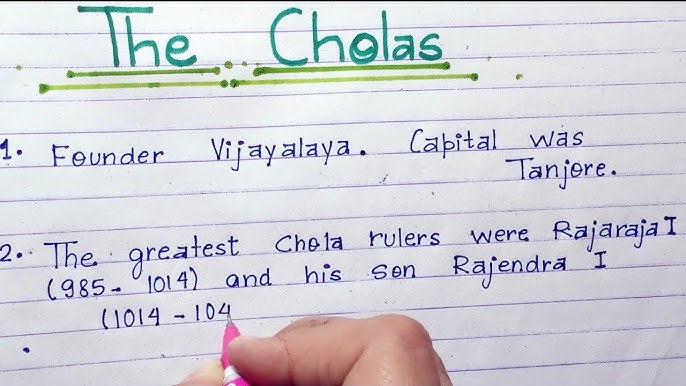 The Cholas
1. Founder Vijayalaya. Capital was
Tanjore.
2. The greatest Chola rulers were Rajaraja I
(985 - 1014) and his son Rajendra I
(1014 - 104